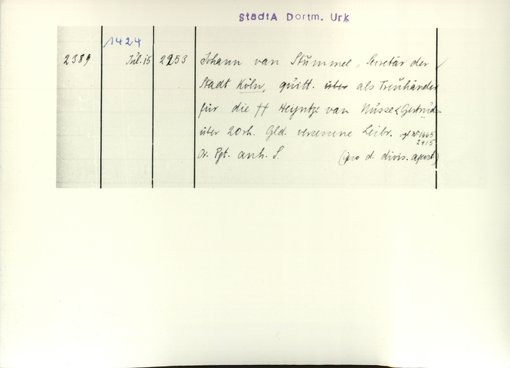 StadtA Dortm. Urk
1424
2389 Jul. 15 2253 Johann van Stummel, Sekretär der
Stadt Köln, quitt. über als Treuhänder
für die †† Heyntze van Nusse & Gertrud
über 20 rh. Gld. versessene Leibr. vgl. Nr 1665
2415
Or. Pgt. anh. S. (pro d. divis. apost.)